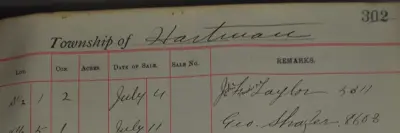 302
Township of Hartman
Lot Con. Acres. Date of Sale. Sale No. REMARKS.
1 2 July 4 Jno Taylor 5011
5 1 July 11 Geo. Shafer 8603